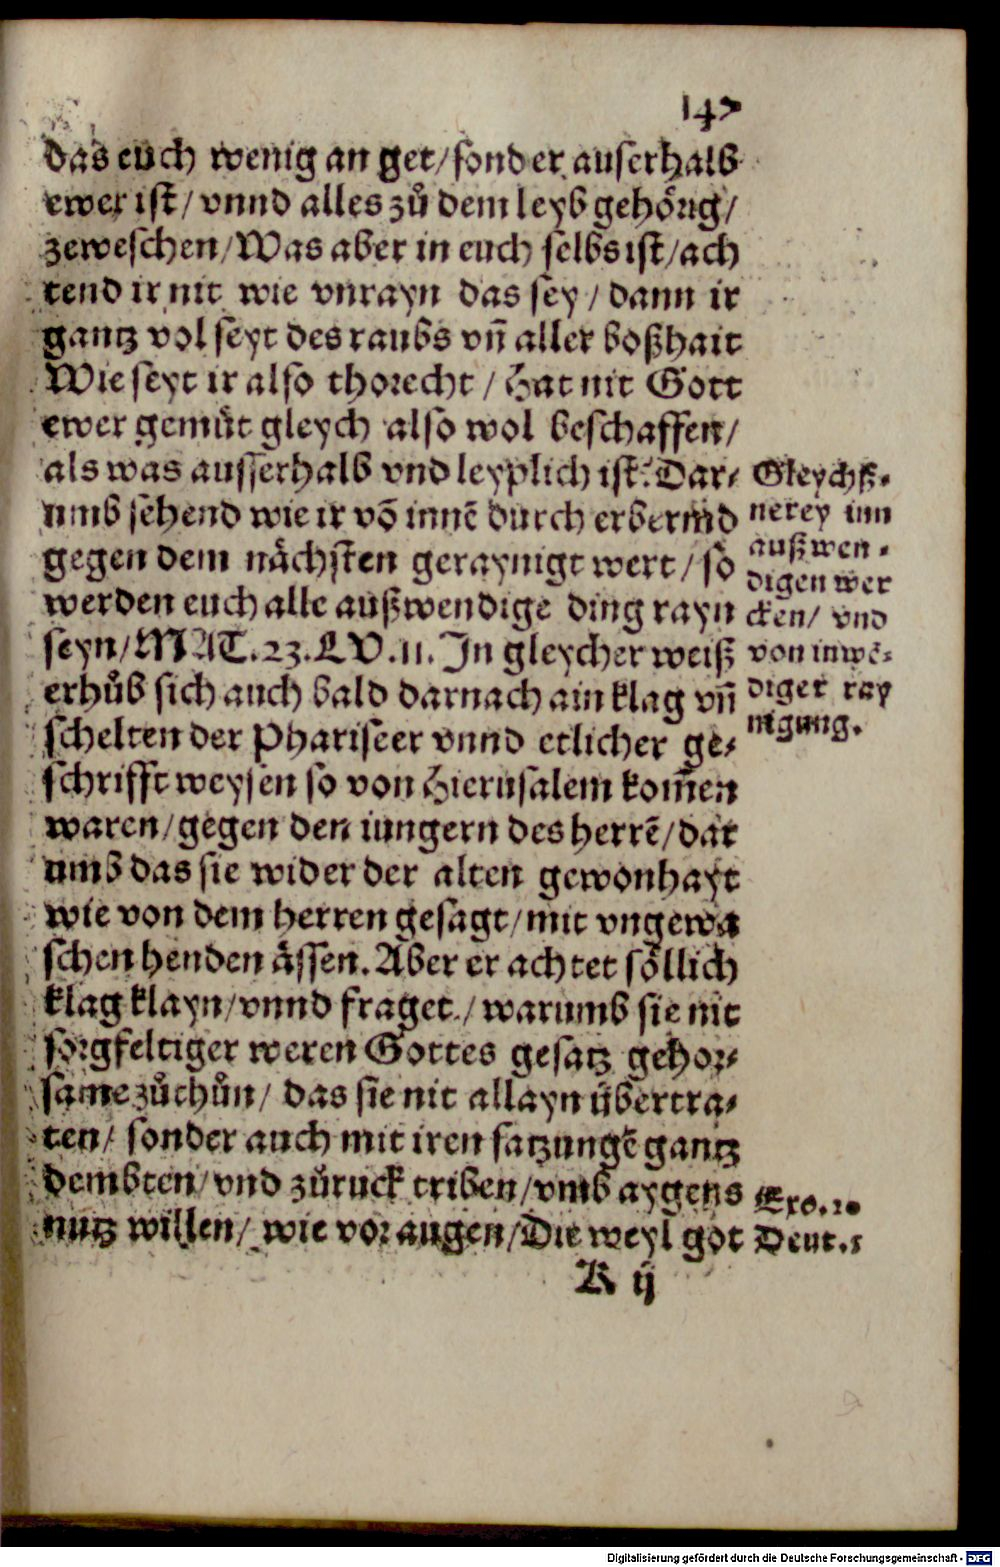 147
das euch wenig an get/ sonder auserhalb
ewer ist/ vnnd alles zů dem leyb gehörig/
zeweschen/ Was aber in euch selbs ist/ ach
tend ir nit wie vnrayn das sey/ dann ir
gantz vol seyt des raubs vñ aller boßhait
Wie seyt ir also thorecht/ Hat nit Gott
ewer gemüt gleych also wol beschaffen/
als was ausserhalb vnd leyplich ist. Dar-
umb sehend wie ir võ innē durch erbermd
gegen dem nächsten geraynigt wert/ so
werden euch alle außwendige ding rayn
seyn/ MAT. 23. LV. 11. In gleycher weiß
erhůb sich auch bald darnach ain klag vñ
schelten der Phariseer vnnd etlicher ge-
schrifft weysen so von Hierusalem kom̄en
waren/ gegen den iungern des herrē/ dar
umb das sie wider der alten gewonhayt
wie von dem herren gesagt/ mit vngewa
schen henden ässen. Aber er achtet söllich
klag klayn/ vnnd fraget/ warumb sie nit
sorgfeltiger weren Gottes gesatz gehor-
same zůthůn/ das sie nit allayn übertra-
ten/ sonder auch mit iren satzungē gantz
dembten/ vnd zůruck triben/ vmb aygens
nutz willen/ wie vor augen/ Die weyl got
K ij
Gleychß-
nerey inn
außwen-
digen wer
cken/ vnd
von inwē-
diger ray
nigung.
Exo. 20
Deut. 5
Digitalisierung gefördert durch die Deutsche Forschungsgemeinschaft - DFG